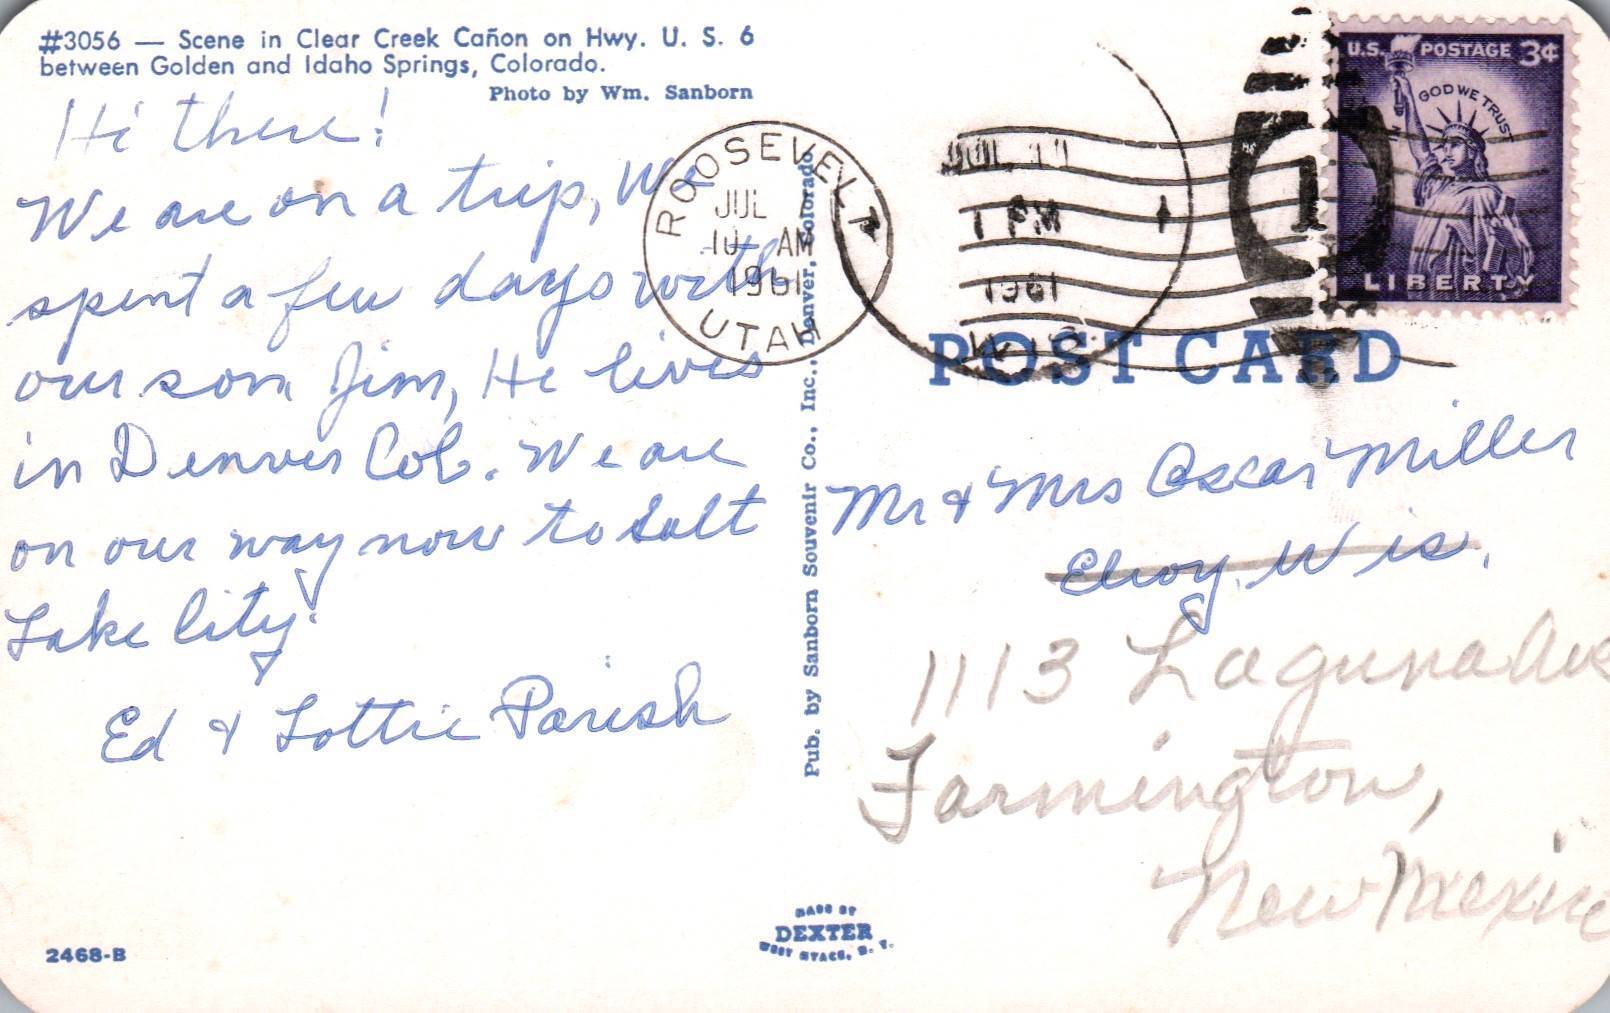 #3056 — Scene in Clear Creek Cañon on Hwy. U. S. 6
between Golden and Idaho Springs, Colorado.
Photo by Wm. Sanborn
Hi there!
We are on a trip, We
spent a few days with
our son Jim, He lives
in Denver Col. We are
on our way now to Salt
Lake City.
Ed & Lottie Parish
2468-B
Pub. by Sanborn Souvenir Co., Inc., Denver, Colorado
MADE BY
DEXTER
WEST NYACK, N. Y.
ROOSEVELT
JUL
10 AM
1961
UTAH
1 PM
1961
1
U.S. POSTAGE 3¢
IN GOD WE TRUST
LIBERTY
POST CARD
Mr & Mrs Oscar Miller
Elroy, Wis.
1113 Laguna Ave
Farmington,
New Mexico